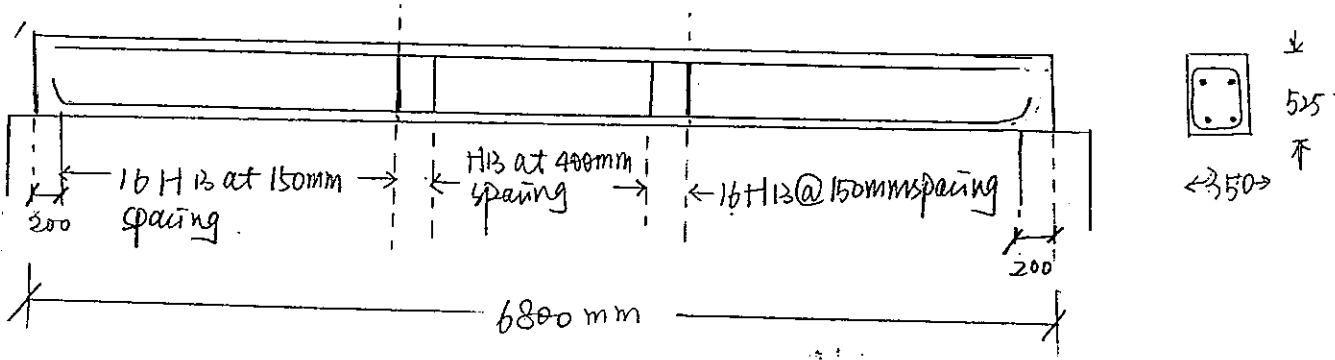 16 H 13 at 150mm
spacing
H13 at 400mm
spacing
16H13@150mmspacing
200
200
6800 mm
525
350